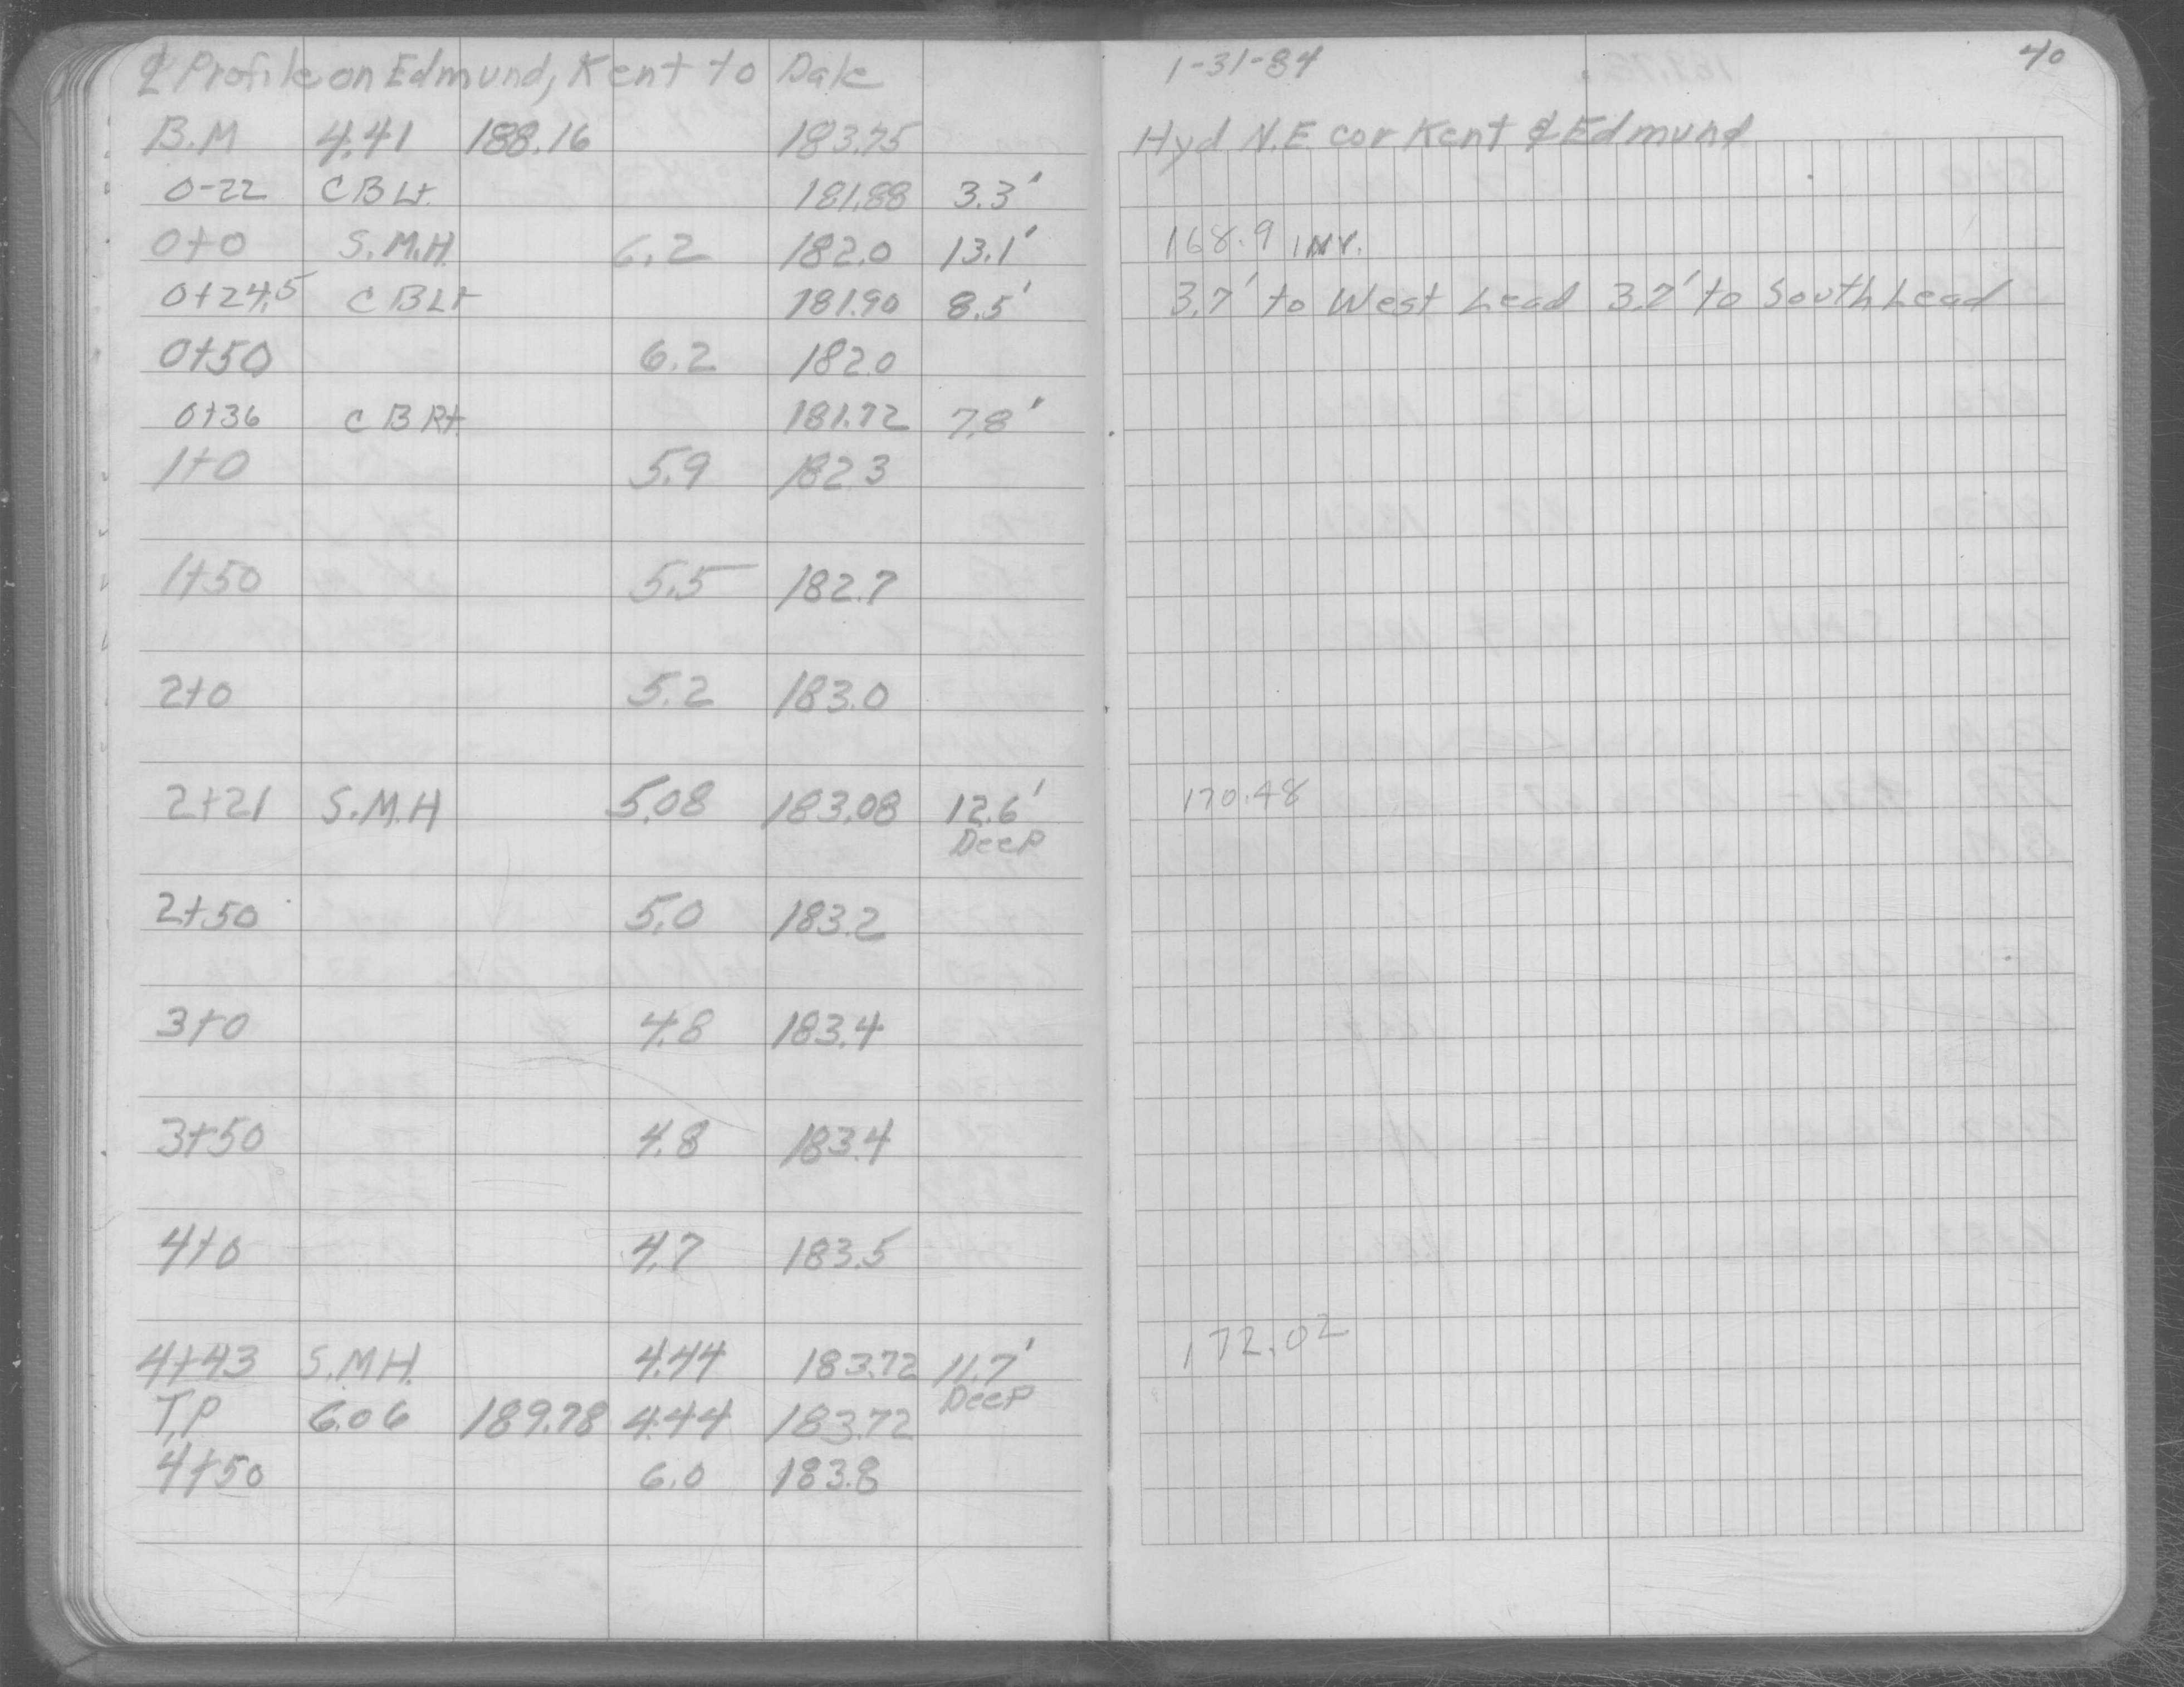 ℄ Profile on Edmund, Kent to Dale
B.M 4.41 188.16 183.75
0-22 CB Lt. 181.88 3.3'
0+0 S.M.H. 6.2 182.0 13.1'
0+24.5 CB Lt 181.90 8.5'
0+50 6.2 182.0
0+36 CB Rt. 181.72 7.8'
1+0 5.9 182.3
1+50 5.5 182.7
2+0 5.2 183.0
2+21 S.M.H 5.08 183.08 12.6'
Deep
2+50 5.0 183.2
3+0 4.8 183.4
3+50 4.8 183.4
4+0 4.7 183.5
4+43 S.M.H. 4.44 183.72 11.7'
Deep
T.P 6.06 189.78 4.44 183.72
4+50 6.0 183.8
1-31-84 40
Hyd N.E. cor Kent & Edmund
168.9 INV.
3.7' to West Lead 3.2' to South Lead
170.48
172.02